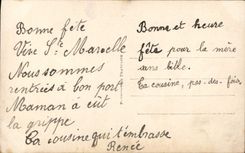 Bonne fête
Vive Ste Marcelle
Nous sommes
rentrées à bon port
Maman a eût
la grippe
Ta cousine qui t'embrasse
Renée
Bonne et heure
fête pour la mère
sans bille.
Ta cousine, pas-des-fois